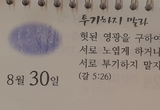 투기하지 말라
헛된 영광을 구하여
서로 노엽게 하거나
서로 투기하지 말지
(갈 5:26)
8월 30일